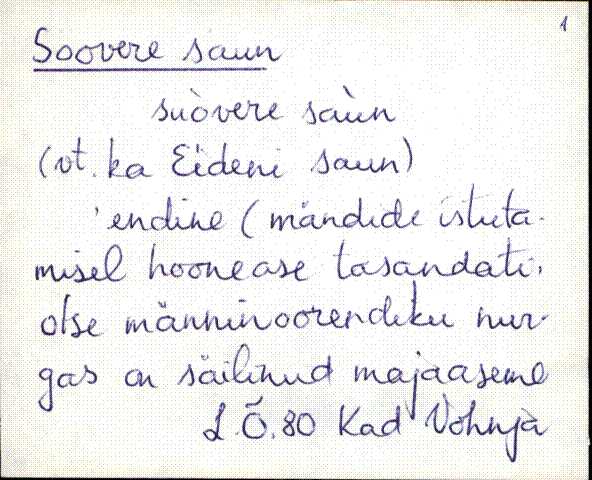 1
Soovere saun
suòvere saùn
(vt. ka Eideni saun)
'endine (mändide istuta-
misel hoonease tasandati,
otse männinoorendiku nur-
gas on säilinud majaaseme
L.Õ. 80 Kad Võhnja